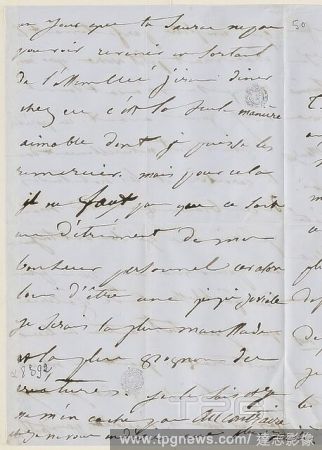 un jour que tu sauras ne pas
pouvoir revenir en sortant
de l'assemblée j'irai diner
chez eux c'est la seule manière
aimable dont je puisse les
remercier. mais pour cela
il ne faut pas que ce soit
au détriment de mon
bonheur personnel car alors
loin d'être une joviale
je serais la plus maussade
et la plus grognon des
créatures. je te
50
8392
www.tpgnews.com/ 達志影像